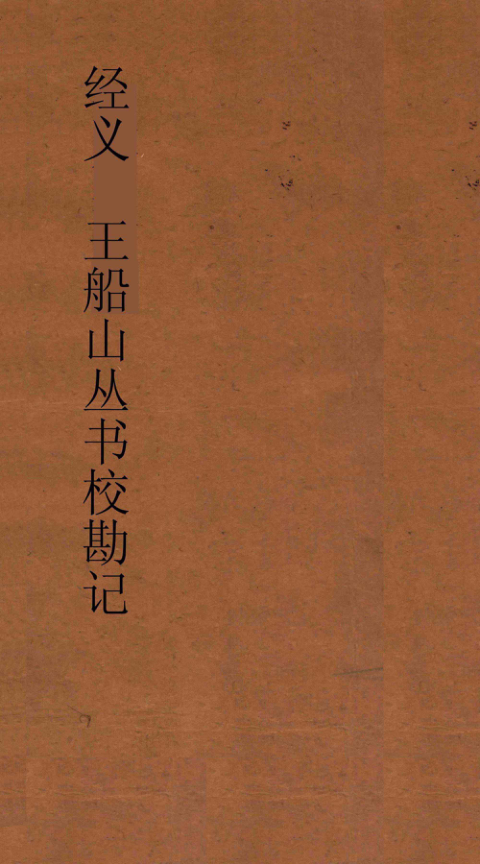 经义 王船山丛书校勘记